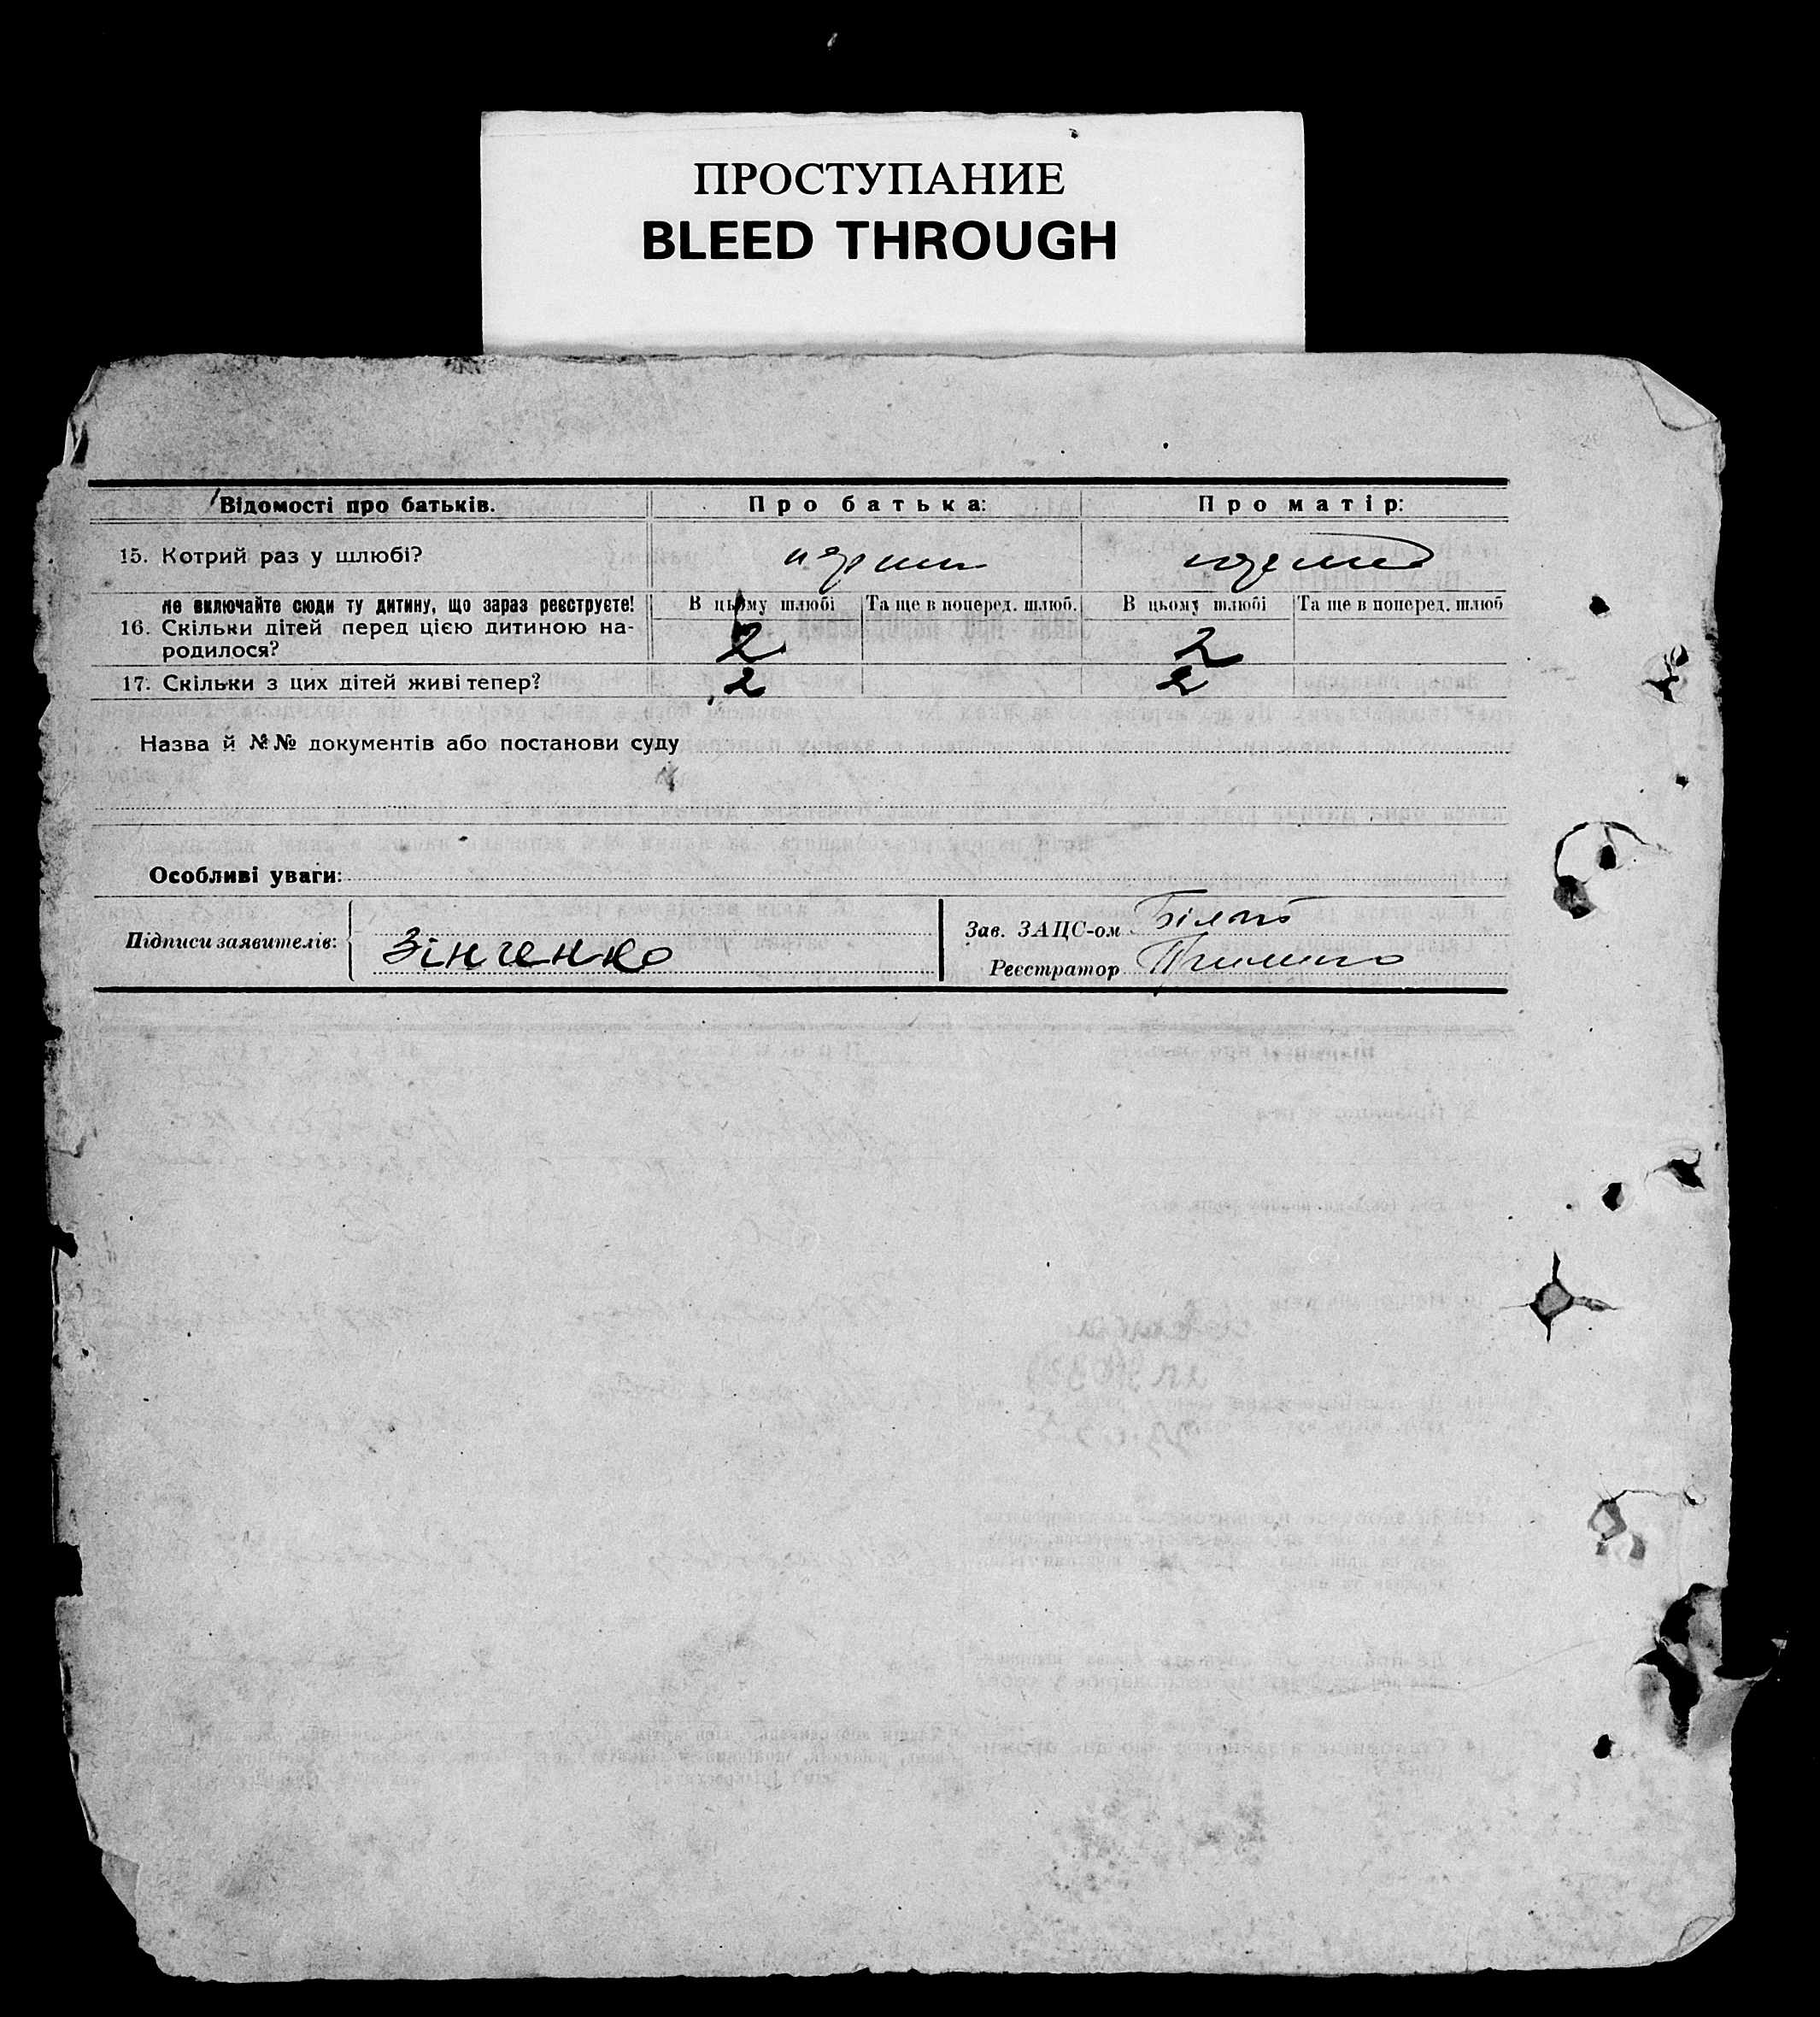 ПРОСТУПАНИЕ
BLEED THROUGH
Відомості про батьків. Про батька: Про матір:
15. Котрий раз у шлюбі? перший
не включайте сюди ту дитину, що зараз реєструєте! В цьому шлюбі Та ще в поперед. шлюб. В цьому шлюбі Та ще в поперед. шлюб
16. Скільки дітей перед цією дитиною на-
родилося? 2 2
17. Скільки з цих дітей живі тепер? 2 2
Назва й №№ документів або постанови суду
Особливі уваги:
Підписи заявителів: Зінченко
Зав. ЗАЦС-ом
Реєстратор